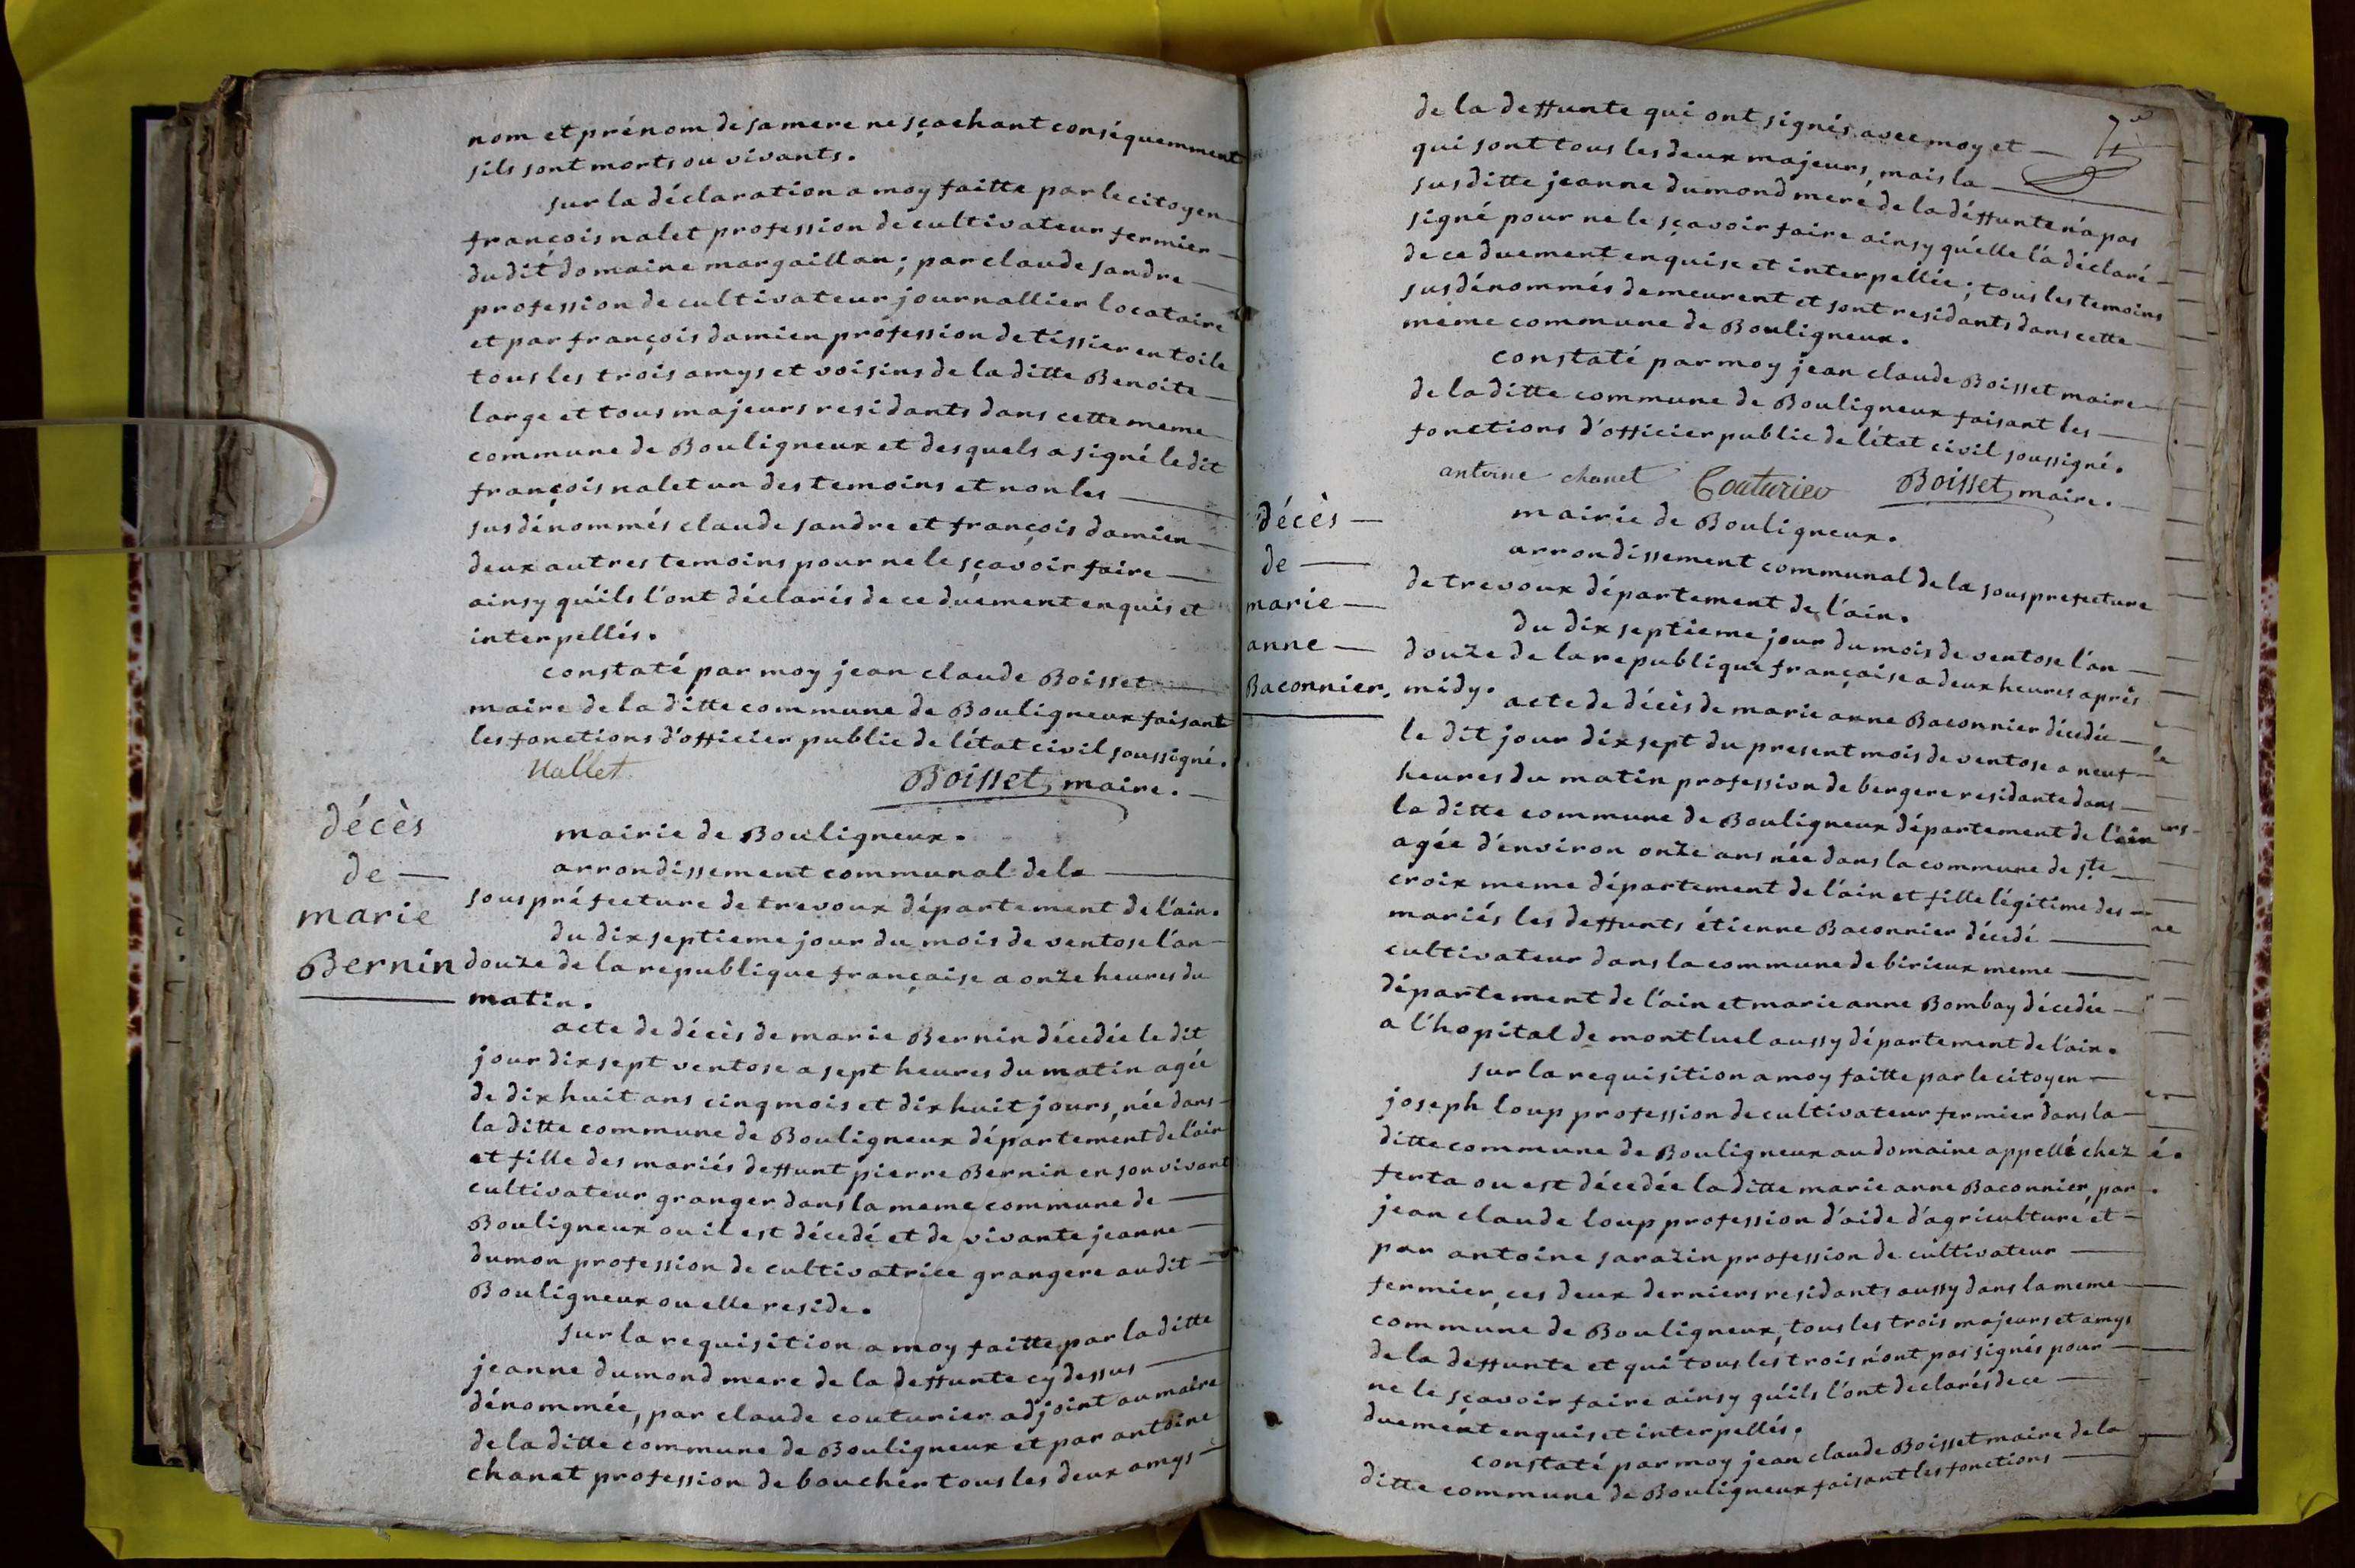 nom et prénom de sa mere ne sçachant conséquemment
sils sont morts ou vivants.
sur la déclaration a moy faitte par le citoyen
françois nalet profession de cultivateur fermier
du dit domaine margaillan; par claude sandre
profession de cultivateur journallier locataire
et par françois damien profession de tissier en toile
tous les trois amys et voisins de la ditte Benoite
large et tous majeurs residants dans cette meme
commune de Bouligneux et desquels a signé le dit
françois nalet un des temoins et non les
susdénommés claude sandre et françois damien
deux autres temoins pour ne le sçavoir faire
ainsy qu'ils l'ont déclarés de ce duement enquis et
interpellés.
constaté par moy jean claude Boisset
maire de la ditte commune de Bouligneux faisant
les fonctions d'officier public de l'état civil soussigné.
Nallet Boisset, maire.
décès
de
marie
Bernin
mairie de Bouligneux.
arrondissement communal de la
sous préfecture de trevoux département de l'ain.
du dix septieme jour du mois de ventose l'an
douze de la republique française a onze heures du
matin.
acte de décès de marie Bernin décedée le dit
jour dix sept ventose a sept heures du matin agée
de dix huit ans cinq mois et dix huit jours, née dans
la ditte commune de Bouligneux département de l'ain
et fille des mariés deffunt pierre Bernin en son vivant
cultivateur granger dans la meme commune de
Bouligneux ou il est décedé et de vivante jeanne
dumon profession de cultivatrice grangere au dit
Bouligneux ou elle reside.
sur la requisition a moy faitte par la ditte
jeanne dumond mere de la deffunte cy dessus
dénommée, par claude couturier adjoint au maire
de la ditte commune de Bouligneux et par antoine
chanet profession de boucher tous les deux amys
7
de la deffunte qui ont signés avec moy et
qui sont tous les deux majeurs, mais la
susditte jeanne dumond mere de la déffunte n'a pas
signé pour ne le sçavoir faire ainsy qu'elle l'a déclaré
de ce duement enquise et interpellée; tous les temoins
susdénommés demeurent et sont residants dans cette
même commune de Bouligneux.
constaté par moy jean claude Boisset maire
de la ditte commune de Bouligneux faisant les
fonctions d'officier public de l'état civil soussigné.
antoine chanet Couturier Boisset, maire.
décès
de
marie
anne
Baconnier.
mairie de Bouligneux.
arrondissement communal de la sous prefecture
de trevoux département de l'ain.
du dix septieme jour du mois de ventose l'an
douze de la republique française a deux heures après
midy.
acte de décès de marie anne Baconnier décedée
le dit jour dix sept du present mois de ventose a neuf
heures du matin profession de bergere residante dans
la ditte commune de Bouligneux département de l'ain
agée d'environ onze ans née dans la commune de ste
croix meme département de l'ain et fille légitime des
mariés les deffunts étienne Baconnier décedé
cultivateur dans la commune de birieux meme
département de l'ain et marie anne Bombay décedée
a l'hopital de montluel aussy département de l'ain.
sur la requisition a moy faitte par le citoyen
joseph loup profession de cultivateur fermier dans la
ditte commune de Bouligneux au domaine appellé chez
ferta ou est décedée la ditte marie anne Baconnier, par
jean claude loup profession d'aide d'agriculture et
par antoine sarazin profession de cultivateur
fermier, ces deux derniers residants aussy dans la meme
commune de Bouligneux, tous les trois majeurs et amys
de la deffunte et qui tous les trois n'ont pas signés pour
ne le sçavoir faire ainsy qu'ils l'ont declarés de ce
duement enquis et interpellés.
constaté par moy jean claude Boisset maire de la
ditte commune de Bouligneux faisant les fonctions